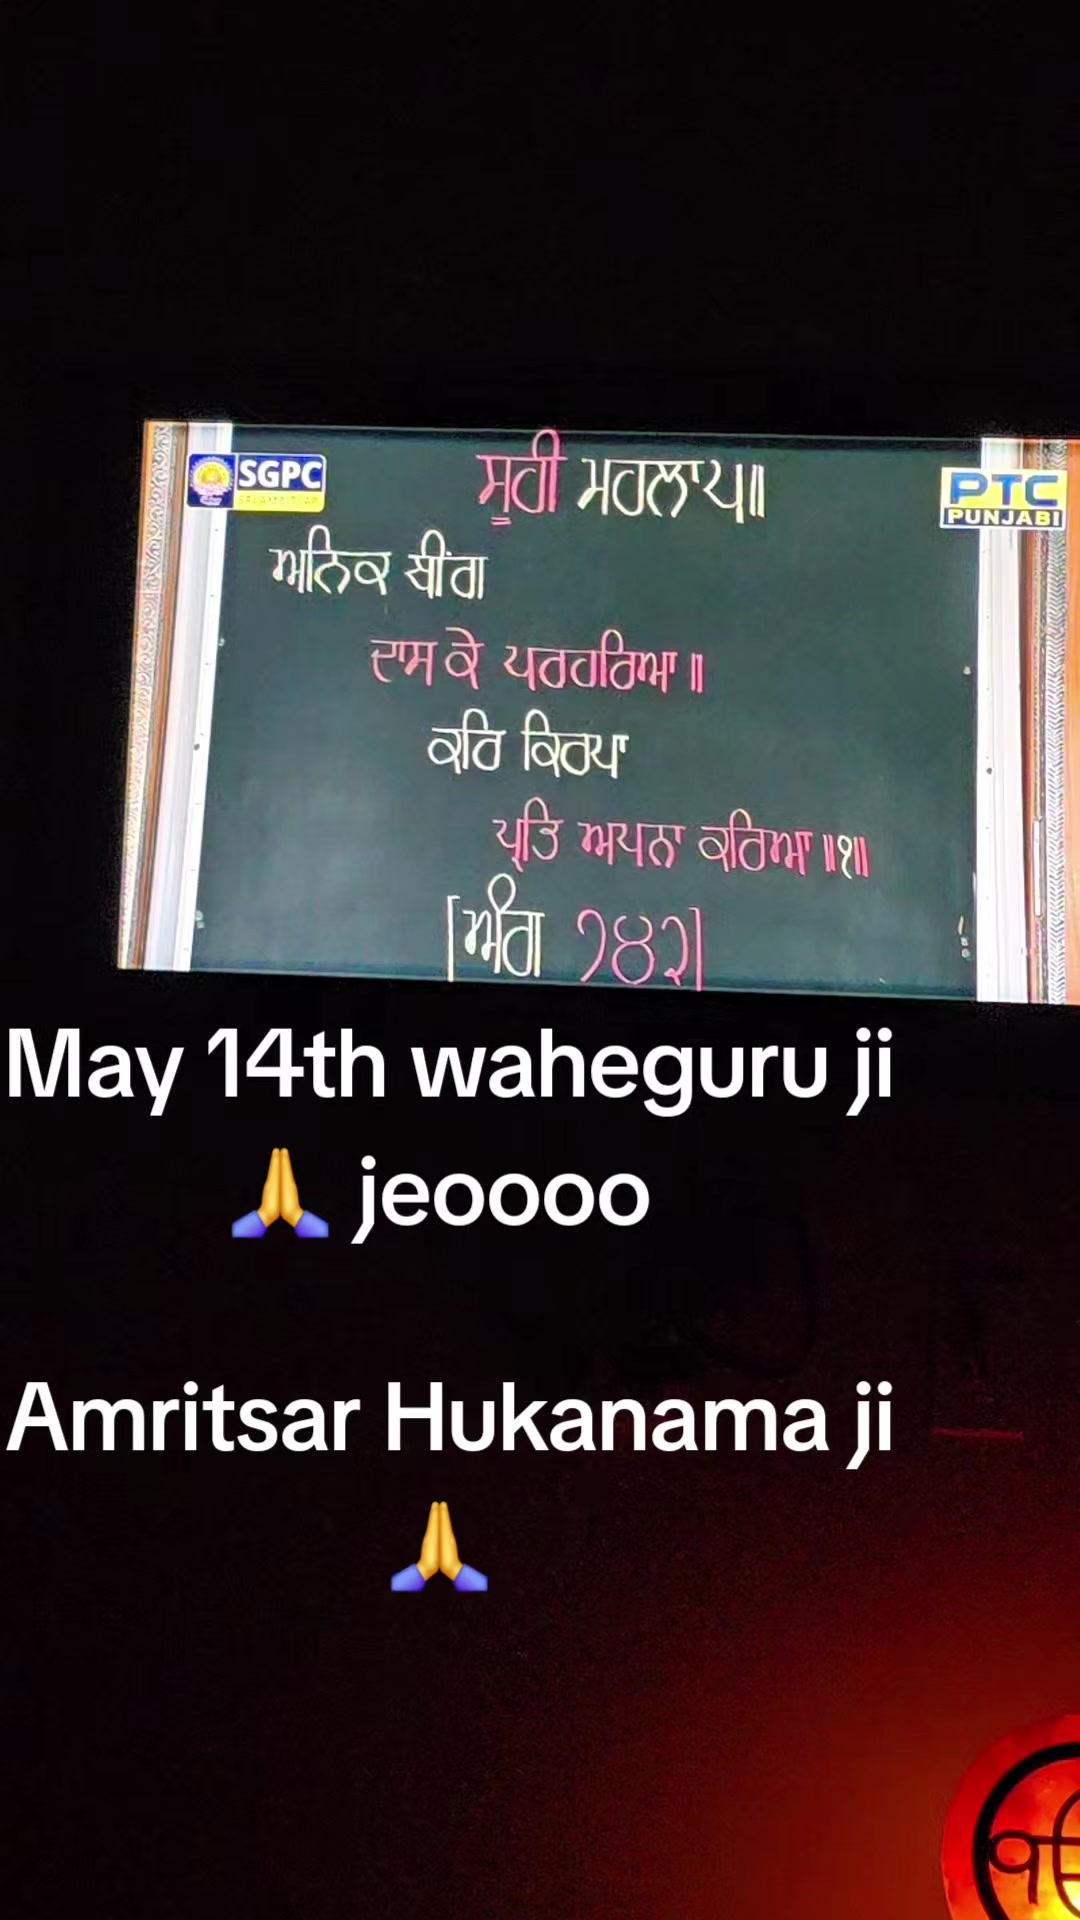 SGPC
SRI AMRITSAR
PTC
PUNJABI
ਸੂਹੀ ਮਹਲਾ ੫॥
ਅਨਿਕ ਬੀਂਗ
ਦਾਸ ਕੇ ਪਰਹਰਿਆ॥
ਕਰਿ ਕਿਰਪਾ
ਪ੍ਰਭਿ ਅਪਨਾ ਕਰਿਆ॥੧॥
[ਅੰਗ ੭੪੨]
May 14th waheguru ji
🙏 jeoooo
Amritsar Hukanama ji
🙏
ੴ